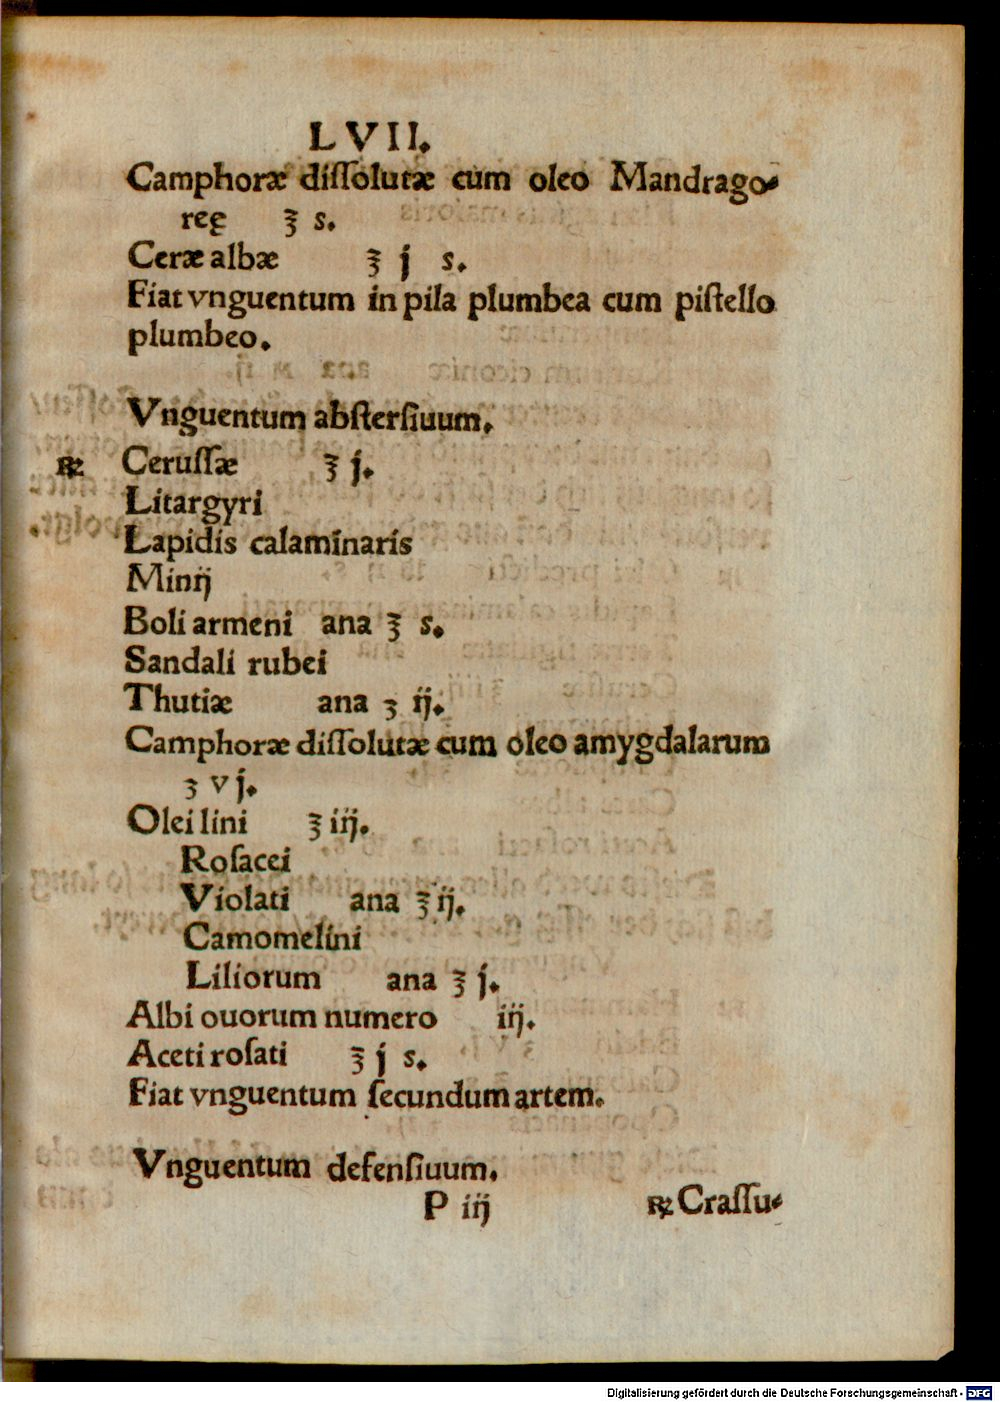 LVII.
Camphoræ diſſolutæ cum oleo Mandrago⸗
reę ℥ s.
Ceræ albæ ℥ j s.
Fiat vnguentum in pila plumbea cum piſtello
plumbeo.
Vnguentum abſterſiuum.
℞ Ceruſſæ ℥ j.
Litargyri
Lapidis calaminaris
Minij
Boli armeni ana ℥ s.
Sandali rubei
Thutiæ ana ʒ ij.
Camphoræ diſſolutæ cum oleo amygdalarum
ʒ vj.
Olei lini ℥ iij.
Roſacei
Violati ana ℥ ij.
Camomelini
Liliorum ana ℥ j.
Albi ouorum numero iij.
Aceti roſati ℥ j s.
Fiat vnguentum ſecundum artem.
Vnguentum defenſiuum.
P iij ℞ Craſſu⸗
Digitalisierung gefördert durch die Deutsche Forschungsgemeinschaft - DFG